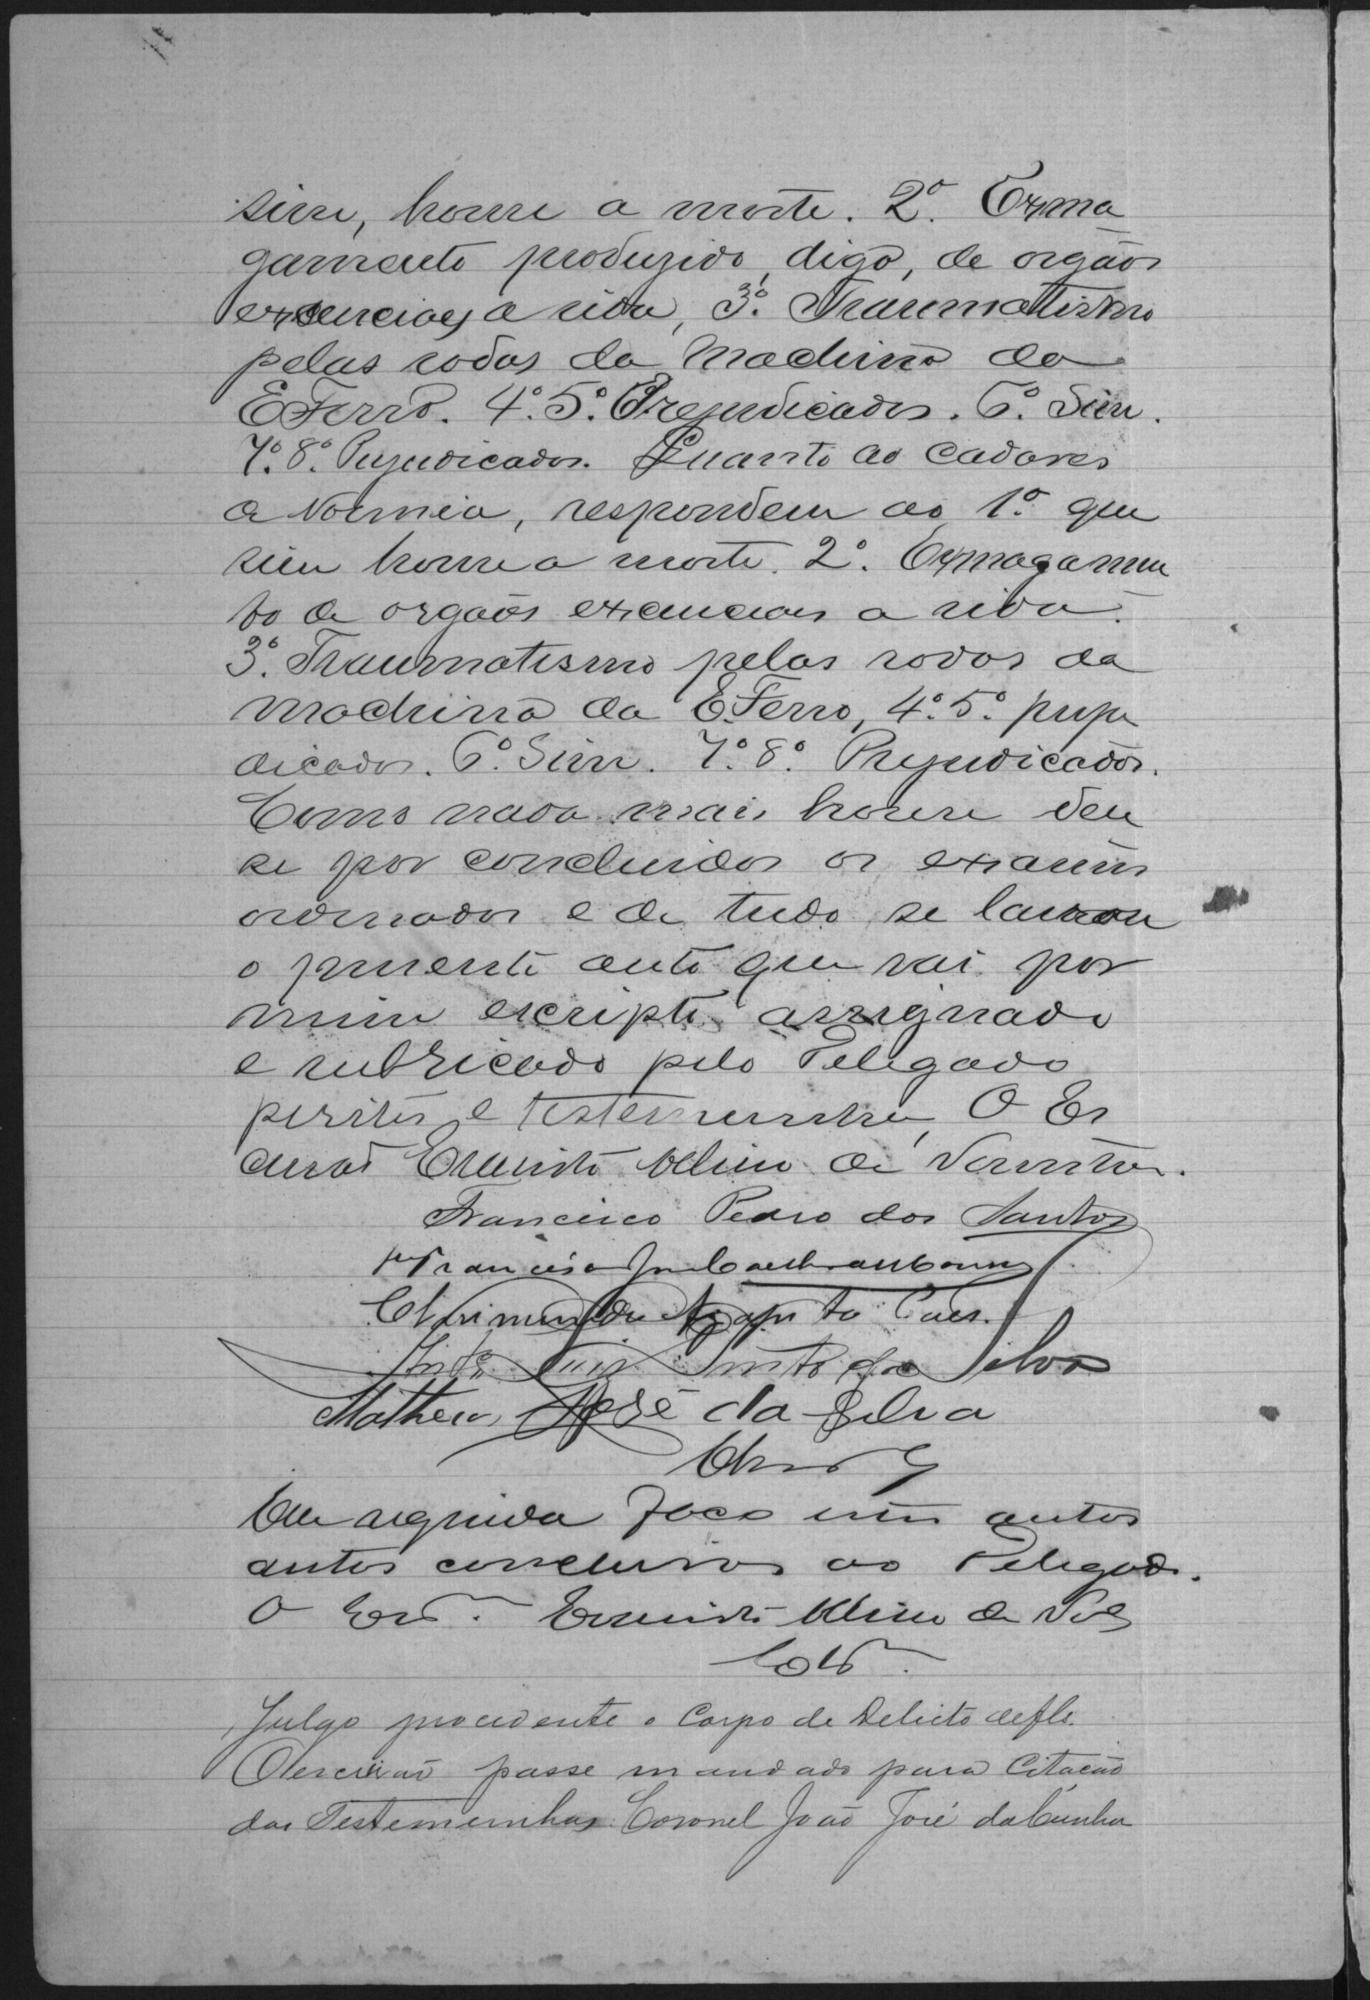 sim, houve a morte. 2º. Esma
gamento produzido, digo, de orgãos
essenciaes a vida, 3º. Traumatismo
pelas rodas da machina da
E Ferro. 4º. 5º. Prejudicados. 6º. Sim.
7º. 8º. Prejudicados. Quanto ao cadaver
de Noemia, respondem ao 1º. que
sim houve a morte. 2º. Esmagamen
to de orgãos essenciaes a vida.
3º. Traumatismo pelas rodas da
machina da E. Ferro, 4º. 5º. preju
dicados. 6º. Sim. 7º. 8º. Prejudicados.
Como nada mais houve deu
se por concluidos os exames
ordenados e de tudo se lavrou
o presente auto que vai por
mim escripto assignado
e rubricado pelo Delegado
peritos e testemunhas, O Es
crivão de
Francisco Pedro dos Santos
Francisco
Pinto da Silva
Matheus José da Silva
Em seguida faço estes autos
autos conclusos ao Delegado.
O Escrm. de
Cols.
Julgo procedente o Corpo de Delicto de fls.
O escrivão passe mandado para Citação
das Testemunhas Coronel João José da Cunha